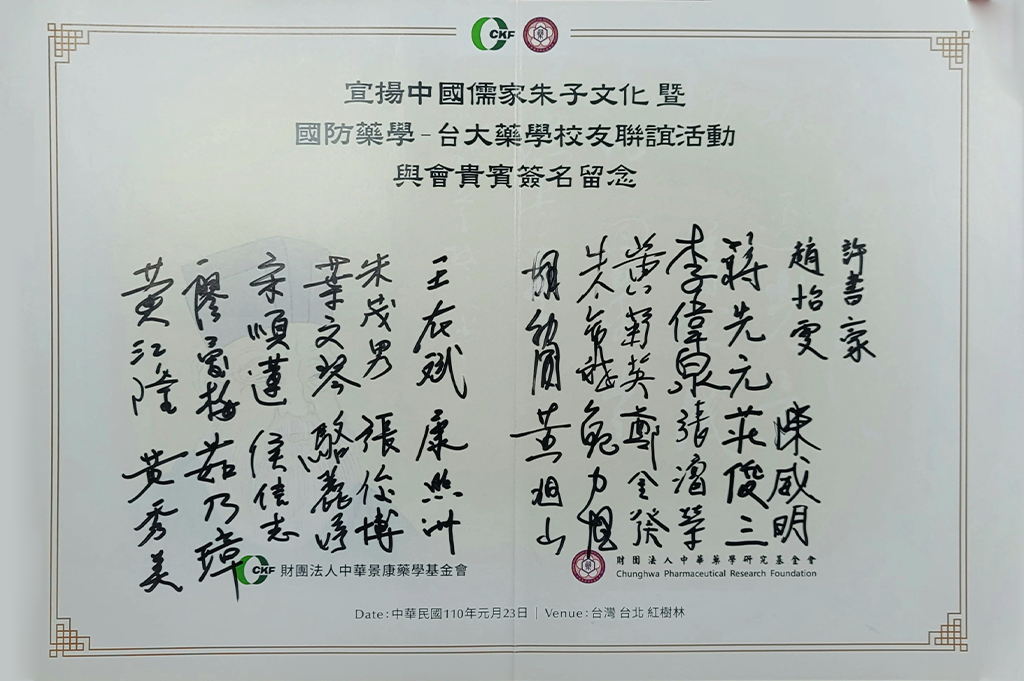 CKF
宣揚中國儒家朱子文化 暨
國防藥學-台大藥學校友聯誼活動
與會貴賓簽名留念
許書豪
趙怡雯
陳威明
蔣先元
莊俊三
李偉泉
張濬榮
黃菊英
鄭金發
胡幼圃
黃旭山
王在斌
康照洲
朱茂男
張俊博
葉文琴
駱麗婷
宋順蓮
侯佳志
廖雪梅
茹乃瑋
黃江隆
黃秀美
CKF 財團法人中華景康藥學基金會
財團法人中華藥學研究基金會
Chunghwa Pharmaceutical Research Foundation
Date:中華民國110年元月23日 | Venue:台灣 台北 紅樹林